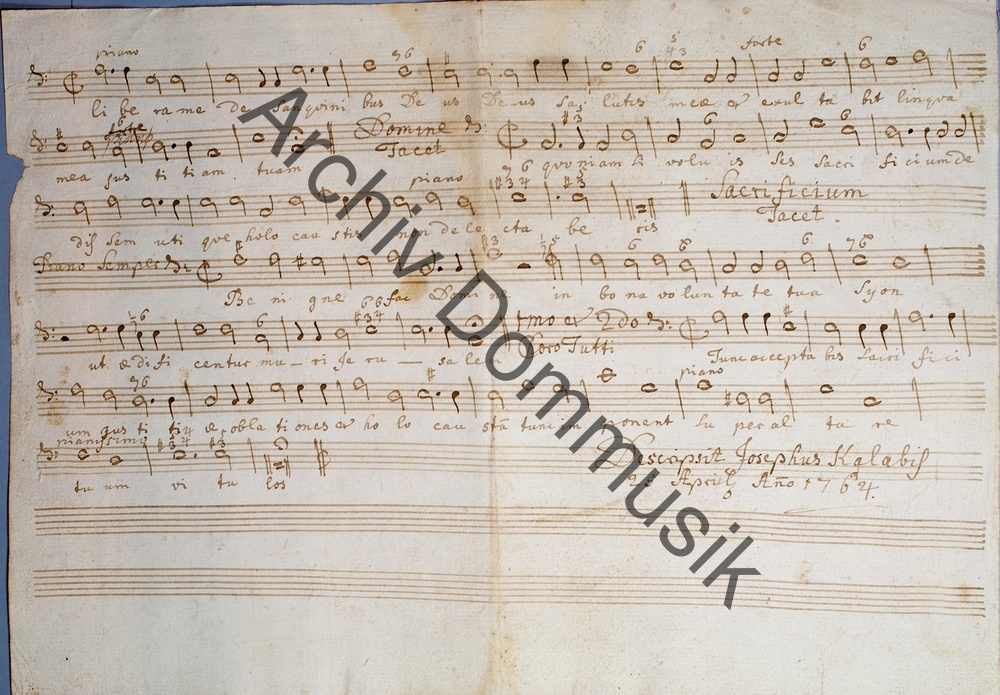 piano
7 6 6 5 4 3 forte 6
li be ra me de Sanguini bus De us De us Sa lutis meæ et exul ta bit lingua
forte Domine
Tacet
mea jus ti tiam tuam quoniam si volu is ses Sacri ficium de
piano Sacrificium
Tacet.
dis sem uti que holo cau stis non dele cta be ris
Piano Semper
Be ni gne fac Domi ne in bo na volun ta te tua Syon
1mo et 2do
Coro Tutti
ut ædifi centur mu ri Je ru sa lem Tunc accepta bis Sacri fici
piano
um jus ti tiæ obla tiones et ho lo cau sta tunc im ponent Su per al ta re
pianissimo
Descripsit Josephus Kalabis
tu um vi tu los 28 April Año 1764.
Archiv Dommusik